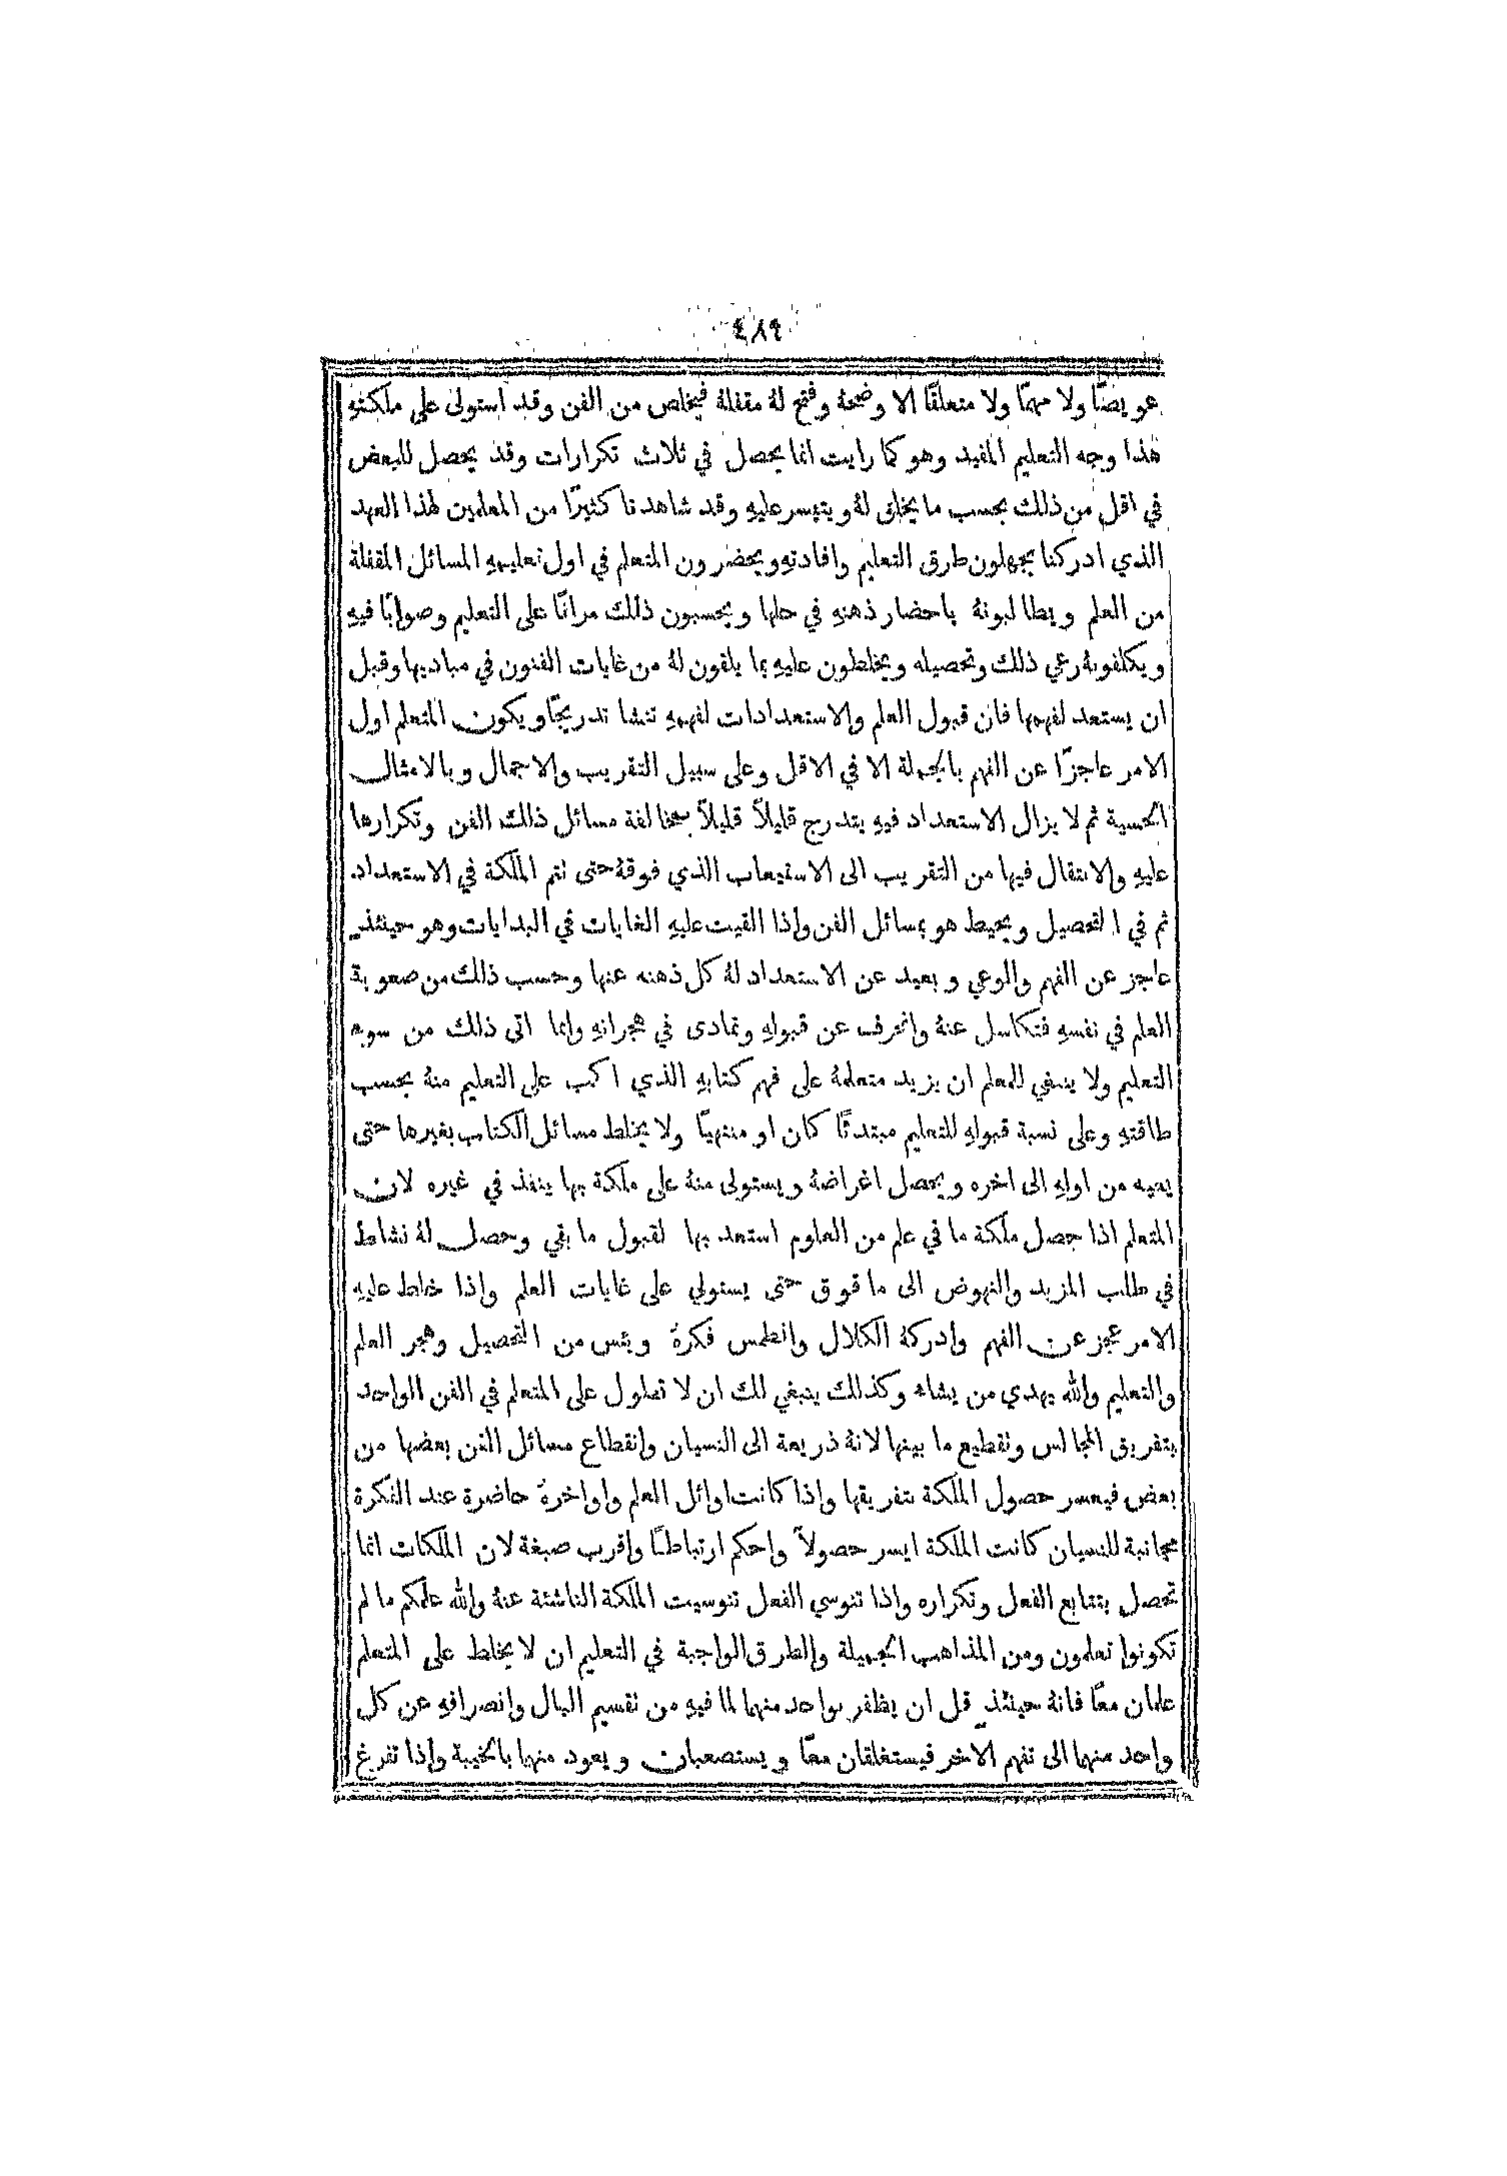 ٤٨٩
عويصًا ولا مهمًا ولا متعلقًا الا وضحهُ وفتح لهُ مقفلهُ فيخلص من الفن وقد استولى على ملكتهِ
هذا وجه التعليم المفيد وهو كما رايت انما يحصل في ثلاث تكرارات وقد يحصل للبعض
في اقل من ذلك بحسب ما يخلق لهُ ويتيسر عليهِ وقد شاهدنا كثيرًا من المعلمين لهذا العهد
الذي ادركنا يجهلون طرق التعليم وافادتهِ ويحضرون المتعلم في اول تعليمهِ المسائل المقفلة
من العلم ويطالبونهُ باحضار ذهنهِ في حلها ويحسبون ذلك مرانًا على التعليم وصوابًا فيهِ
ويكلفونهُ رعي ذلك وتحصيله ويخلطون عليهِ بما يلقون لهُ من غايات الفنون في مباديها وقبل
ان يستعد لفهمها فان قبول العلم والاستعدادات لفهمهِ تنشا تدريجًا ويكون المتعلم اول
الامر عاجزًا عن الفهم بالجملة الا في الاقل وعلى سبيل التقريب والاجمال وبالامثال
الحسية ثم لا يزال الاستعداد فيهِ يتدرج قليلًا قليلًا بمخالفة مسائل ذلك الفن وتكرارها
عليهِ والانتقال فيها من التقريب الى الاستيعاب الذي فوقهُ حتى تتم الملكة في الاستعداد
ثم في التحصيل ويحيط هو بمسائل الفن واذا القيت عليهِ الغايات في البدايات وهو حينئذٍ
عاجز عن الفهم والوعي وبعيد عن الاستعداد لهُ كل ذهنه عنها وحسب ذلك من صعوبة
العلم في نفسهِ فتكاسل عنهُ وانحرف عن قبولهِ وتمادى في هجرانهِ وانما اتى ذلك من سوء
التعليم ولا ينبغي للمعلم ان يزيد متعلمهُ على فهم كتابهِ الذي اكب على التعليم منهُ بحسب
طاقتهِ وعلى نسبة قبولهِ للتعليم مبتدئًا كان او منتهيًا ولا يخلط مسائل الكتاب بغيرها حتى
يعيه من اولهِ الى اخره ويحصل اغراضهُ ويستولى منهُ على ملكة بها ينفذ في غيره لان
المتعلم اذا حصل ملكة ما في علم من العلوم استعد بها لقبول ما بقي وحصل لهُ نشاط
في طلب المزيد والنهوض الى ما فوق حتى يستولي على غايات العلم واذا خلط عليهِ
الامر عجز عن الفهم وادركهُ الكلال وانطمس فكرهُ ويئس من التحصيل وهجر العلم
والتعليم والله يهدي من يشاء وكذلك ينبغي لك ان لا تطول على المتعلم في الفن الواحد
بتفريق المجالس وتقطيع ما بينها لانهُ ذريعة الى النسيان وانقطاع مسائل الفن بعضها من
بعض فيعسر حصول الملكة بتفريقها واذا كانت اوائل العلم واواخرهُ حاضرة عند الفكرة
مجانبة للنسيان كانت الملكة ايسر حصولًا واحكم ارتباطًا واقرب صبغة لان الملكات انما
تحصل بتتابع الفعل وتكراره واذا تنوسي الفعل تنوسيت الملكة الناشئة عنهُ والله علمكم ما لم
تكونوا تعلمون ومن المذاهب الجميلة والطرق الواجبة في التعليم ان لا يخلط على المتعلم
علمان معًا فانهُ حينئذٍ قل ان يظفر بواحد منهما لما فيهِ من تقسيم البال وانصرافهِ عن كل
واحد منهما الى تفهم الاخر فيستغلقان معًا ويستصعبان ويعود منهما بالخيبة واذا تفرغ